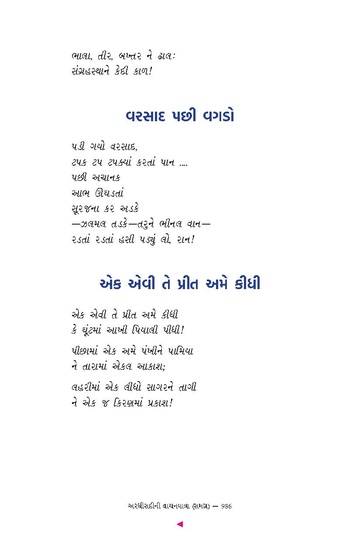 ભાલા, તીર, બખ્તર ને ઢાલઃ
સંગ્રહસ્થાને કેદી કાળ!
વરસાદ પછી વગડો
પડી ગયો વરસાદ,
ટપક ટપ ટપક્યાં કરતાં પાન ....
પછી અચાનક
આભ ઊઘડતાં
સૂરજના કર અડકે
—ઝલમલ તડકે—તરુને ભીનલ વાન—
રડતાં રડતાં હસી પડ્યું લો, રાન!
એક એવી તે પ્રીત અમે કીધી
એક એવી તે પ્રીત અમે કીધી
કે ઘૂંટમાં આખી પિયાલી પીધી!
પીછામાં એક અમે પંખીને પામિયા
ને તારામાં એકલ આકાશ;
લહરીમાં એક લીધો સાગરને તાગી
ને એક જ કિરણમાં પ્રકાશ!
અરધીસદીની વાચનયાત્રા (સમગ્ર) — 986